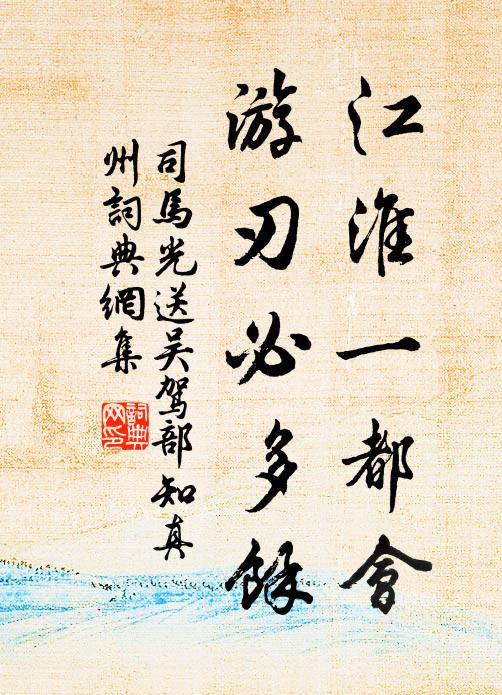 江淮一都會
游刃必多餘
司馬光送吴駕部知真
州詞典網集
詞典网印